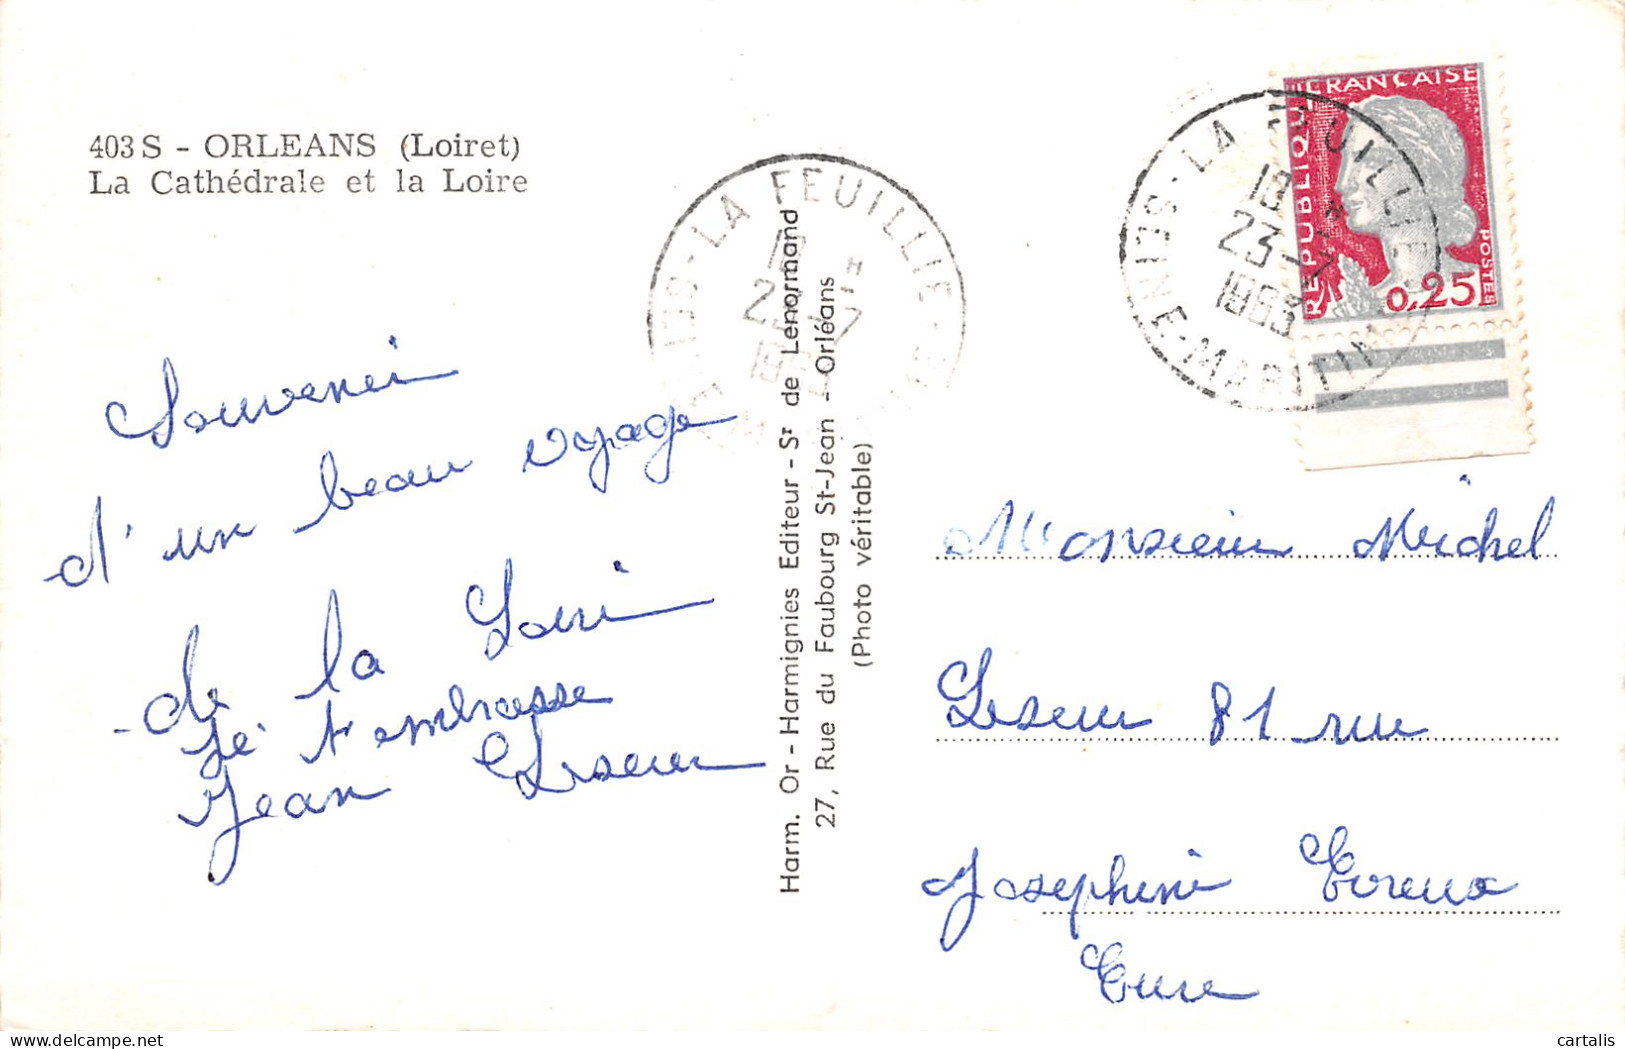 403 S - ORLEANS (Loiret)
La Cathédrale et la Loire
Souvenir
d'un beau voyage
de la Loire
Je t'embrasse
Jean Leseur
Harm. Or - Harmignies Editeur - Sr de Lenormand
27, Rue du Faubourg St-Jean - Orléans
(Photo véritable)
LA FEUILLIE
18 H
23-7
LA FEUILLIE
SEINE-MARITIME
18 H
23-7
1963
REPUBLIQUE FRANÇAISE
POSTES
0,25
Monsieur Michel
Leseur 81 rue
Josephine Evreux
Eure
cartalis